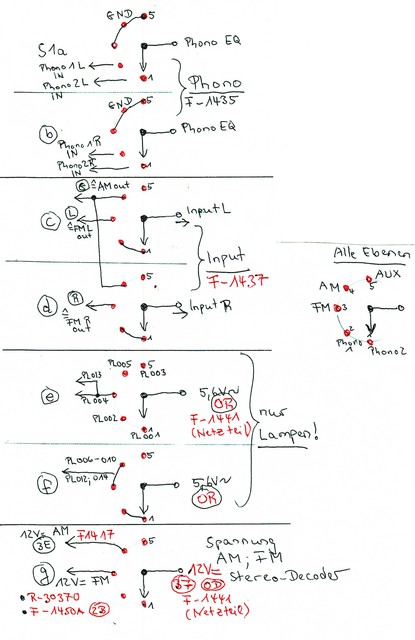 GND
5
S1a
Phono EQ
Phono 1L
IN
Phono 2L
IN
1
Phono
F-1435
GND
5
b
Phono EQ
Phono 1R
IN
Phono 2R
IN
1
≙ AM out
5
c
L
Input L
≙ FM L
out
1
Input
F-1437
5
d
R
Input R
≙
FM R
out
1
Alle Ebenen
AUX
AM
4
5
FM
3
2
1
Phono
1
Phono2
PL005
5
PL013
PL003
e
PL004
5,6V~
OR
PL002
F-1441
(Netzteil)
PL001
nur
Lampen!
PL006-010
5
PL012,014
f
5,6V~
OR
1
12V= AM
F1417
5
3E
Spannung
AM; FM
Stereo-Decoder
g
12V= FM
12V=
OD
R-30370
F-1450A
2B
1
F-1441
(Netzteil)